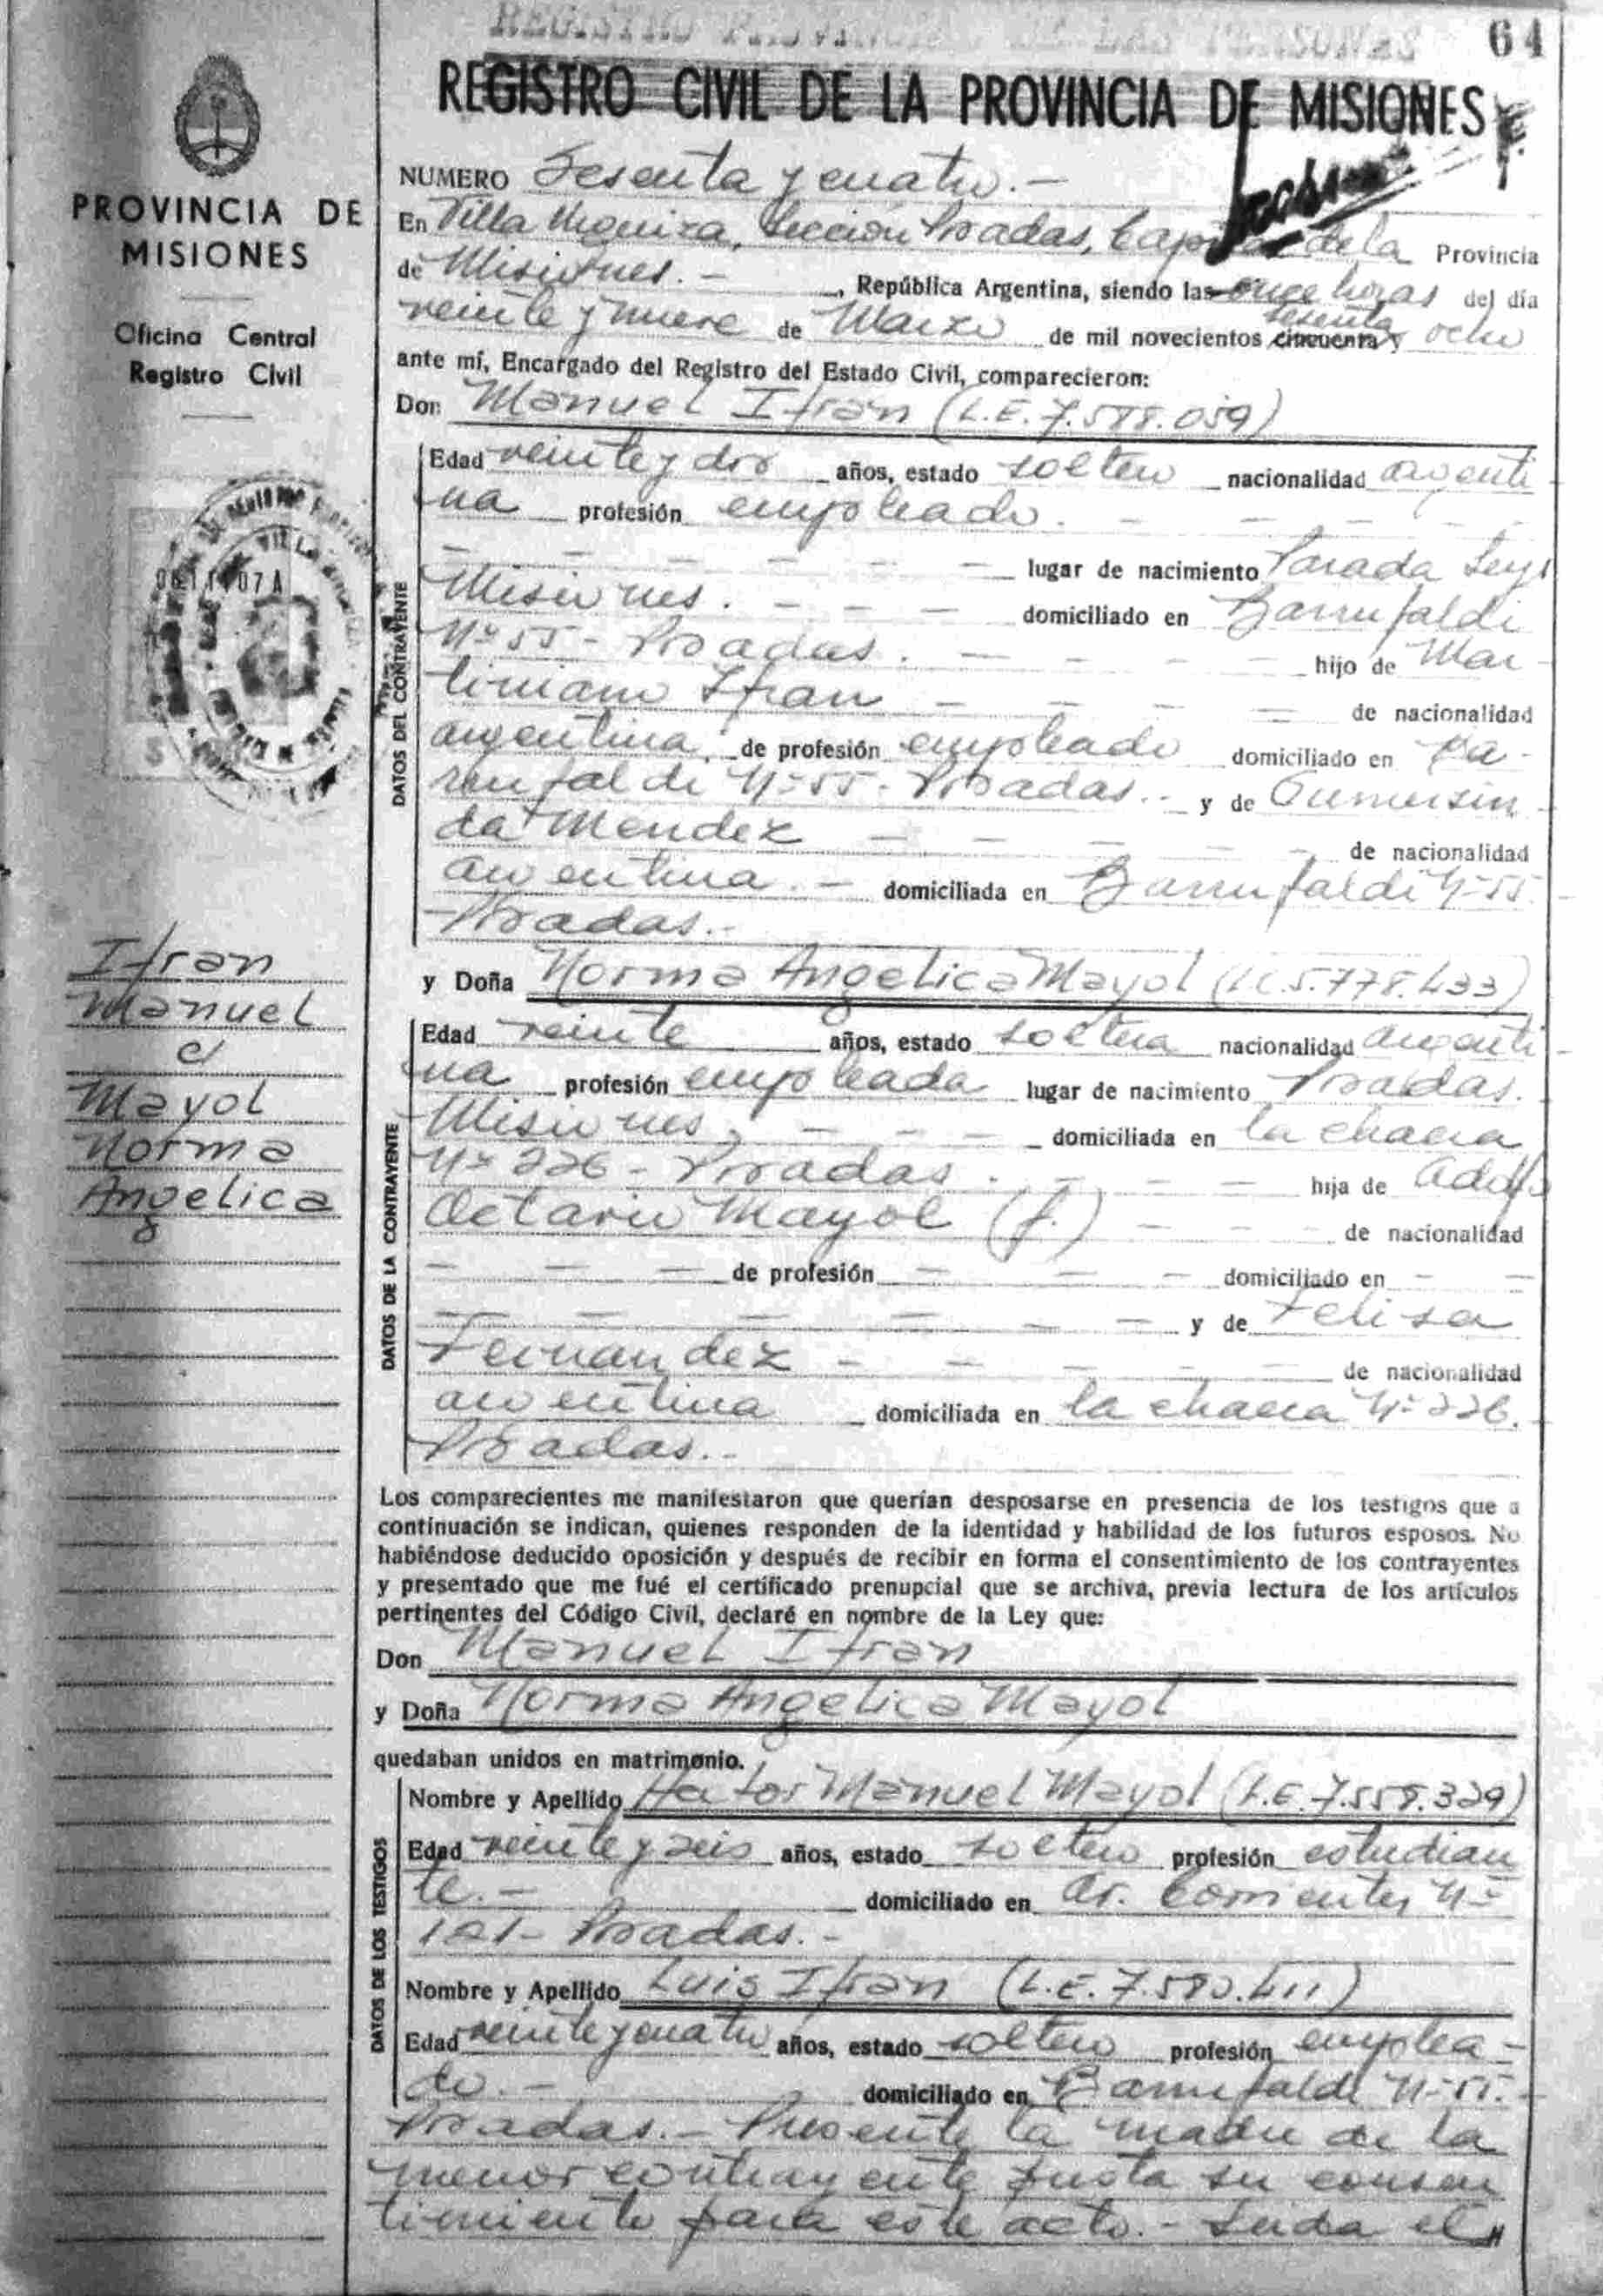 64
REGISTRO CIVIL DE LA PROVINCIA DE MISIONES
PROVINCIA DE
MISIONES
Oficina Central
Registro Civil
Ifran
Manuel
c/
Mayol
Norma
Angelica
NUMERO Sesenta y cuatro.-
En Villa Urquiza, Sección Posadas, Capital de la Provincia
de Misiones.- , República Argentina, siendo las once horas del día
veinte y nueve de Marzo de mil novecientos cincuenta sesenta y ocho
ante mí, Encargado del Registro del Estado Civil, comparecieron:
Don Manuel Ifran (L.E. 7.588.059)
DATOS DEL CONTRAYENTE
Edad veinte y dos años, estado soltero nacionalidad argenti-
na profesión empleado. - - -
- - - - - - lugar de nacimiento Parada Leys
Misiones. - - - domiciliado en Barrufaldi
Nº 55 - Posadas. - - - - hijo de Mar-
tiniano Ifran - - - - de nacionalidad
argentina, de profesión empleado domiciliado en Ba-
rrufaldi Nº 55 - Posadas.- y de Gumersin-
da Mendez - - - - de nacionalidad
argentina. - domiciliada en Barrufaldi Nº 55.
Posadas.-
y Doña Norma Angelica Mayol (L.C. 5.778.433)
DATOS DE LA CONTRAYENTE
Edad veinte años, estado soltera nacionalidad argenti-
na profesión empleada lugar de nacimiento Posadas.
Misiones, - - - domiciliada en la chacra
Nº 226 - Posadas. - - - hija de Adolfo
Octavio Mayol (f.) - - - de nacionalidad
- - - de profesión - - - domiciliado en - -
- - - - - - y de Felisa
Fernandez - - - - de nacionalidad
argentina domiciliada en la chacra Nº 226.
Posadas.-
Los comparecientes me manifestaron que querían desposarse en presencia de los testigos que a
continuación se indican, quienes responden de la identidad y habilidad de los futuros esposos. No
habiéndose deducido oposición y después de recibir en forma el consentimiento de los contrayentes
y presentado que me fué el certificado prenupcial que se archiva, previa lectura de los artículos
pertinentes del Código Civil, declaré en nombre de la Ley que:
Don Manuel Ifran
y Doña Norma Angelica Mayol
quedaban unidos en matrimonio.
DATOS DE LOS TESTIGOS
Nombre y Apellido Hector Manuel Mayol (L.E. 7.558.329)
Edad veinte y seis años, estado soltero profesión estudian
te.- domiciliado en Av. Corrientes Nº
121 - Posadas.-
Nombre y Apellido Luis Ifran (L.E. 7.580.411)
Edad veinte y cuatro años, estado soltero profesión emplea-
do.- domiciliado en Barrufaldi Nº 55.-
Posadas.- Presente la madre de la
menor contrayente presta su consen
timiento para este acto.- Leida el